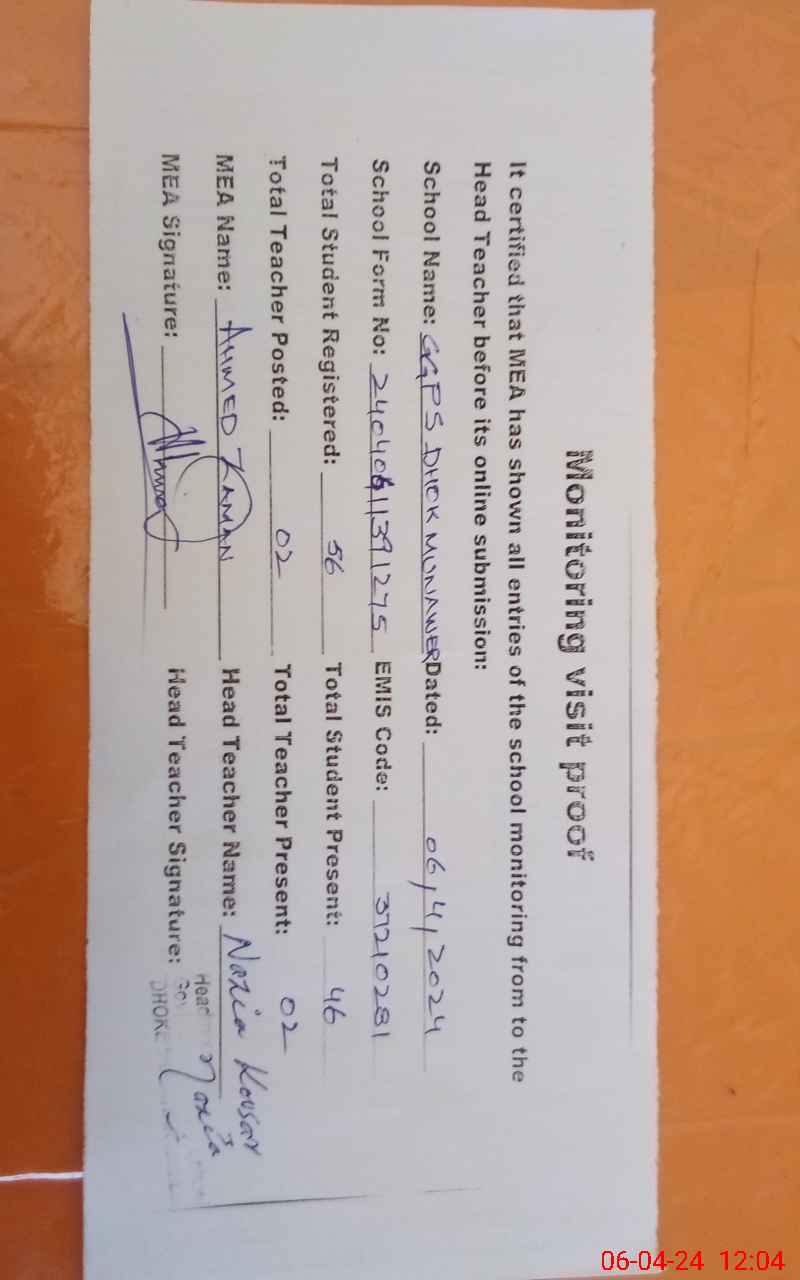 Monitoring visit proof
It certified that MEA has shown all entries of the school monitoring from to the
Head Teacher before its online submission:
School Name: GGPS DHOK MUNAWER Dated: 06/4/2024
School Form No: EMIS Code: 37210281
Total Student Registered: 56 Total Student Present: 46
Total Teacher Posted: 02 Total Teacher Present: 02
MEA Name: AHMED ZAMAN Head Teacher Name: Nazia Kousar
MEA Signature: Head Teacher Signature: Nazia
Head
DHOK
06-04-24 12:04